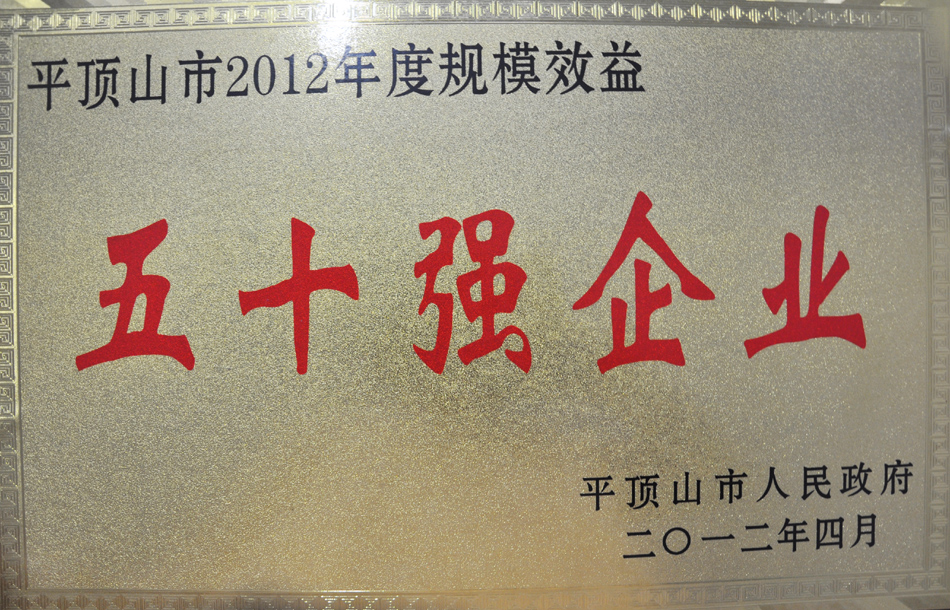 平顶山市2012年度规模效益
五十强企业
平顶山市人民政府
二〇一二年四月